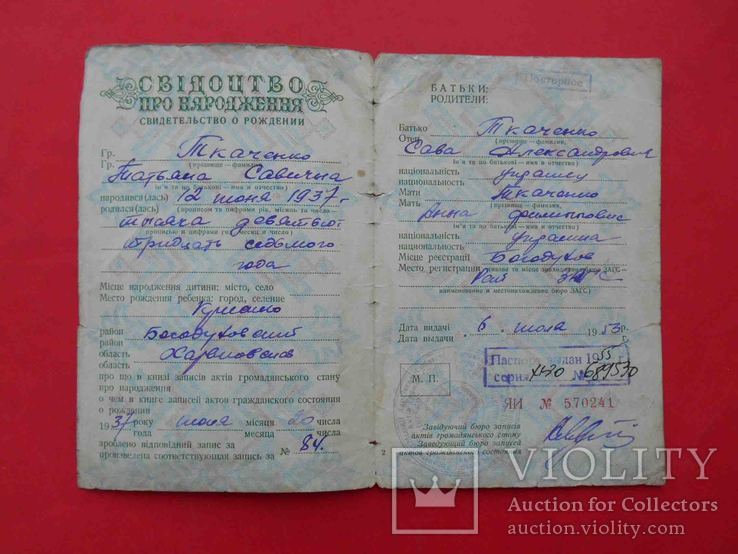 СВІДОЦТВО
ПРО НАРОДЖЕННЯ
СВИДЕТЕЛЬСТВО О РОЖДЕНИИ
Гр. Ткаченко
Гр. (прізвище — фамилия)
Татьяна Савична
(ім'я та по батькові — имя и отчество)
народився(лась) 12 июня 1937 г.
родился(лась) (прописом и цифрами рік, місяць та число —
тысяча девятьсот
прописью и цифрами год, месяц и число)
тридцать седьмого
года
Місце народження дитини: місто, село
Место рождения ребенка: город, селение
район Богодуховский
район
область Харьковская
область
про що в книзі записів актів громадянського стану
про народження
о чем в книге записей актов гражданского состояния
о рождении
19 37 року июня місяця 20 числа
года месяца числа
зроблено відповідний запис за № 84.
произведена соответствующая запись за
БАТЬКИ:
РОДИТЕЛИ:
Повторное
Батько Ткаченко
Отец (прізвище — фамилия,
Сава Александрович
ім'я та по батькові — имя и отчество)
національність украинец
национальность
Мати Ткаченко
Мать (прізвище — фамилия,
Анна Филипповна
ім'я та по батькові — имя и отчество)
національність украинка
национальность
Місце реєстрації Богодухов
Место регистрации (назва та місце знаходження бюро ЗАГС —
Рай ЗАГС
наименование и местонахождение бюро ЗАГС)
Дата видачі 6 июля 1953 р.
Дата выдачи г.
Паспорт выдан 1955 г.
серия № 689530
М. П.
ЯИ № 570241
Завідуючий бюро записів
актів громадянського стану
Заведующий бюро записей
актов гражданского состояния
2
VIOLITY
Auction for Collectors
auction.violity.com